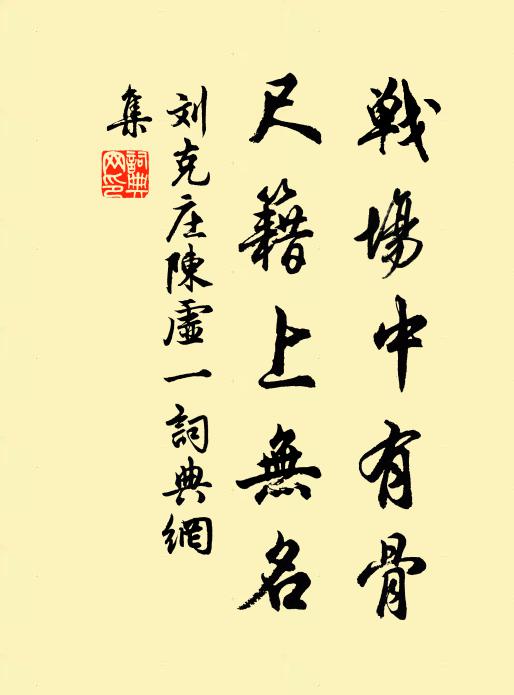 戦場中有骨
尺籍上無名
刘克庄陳虛一詞典網
集
詞典网印